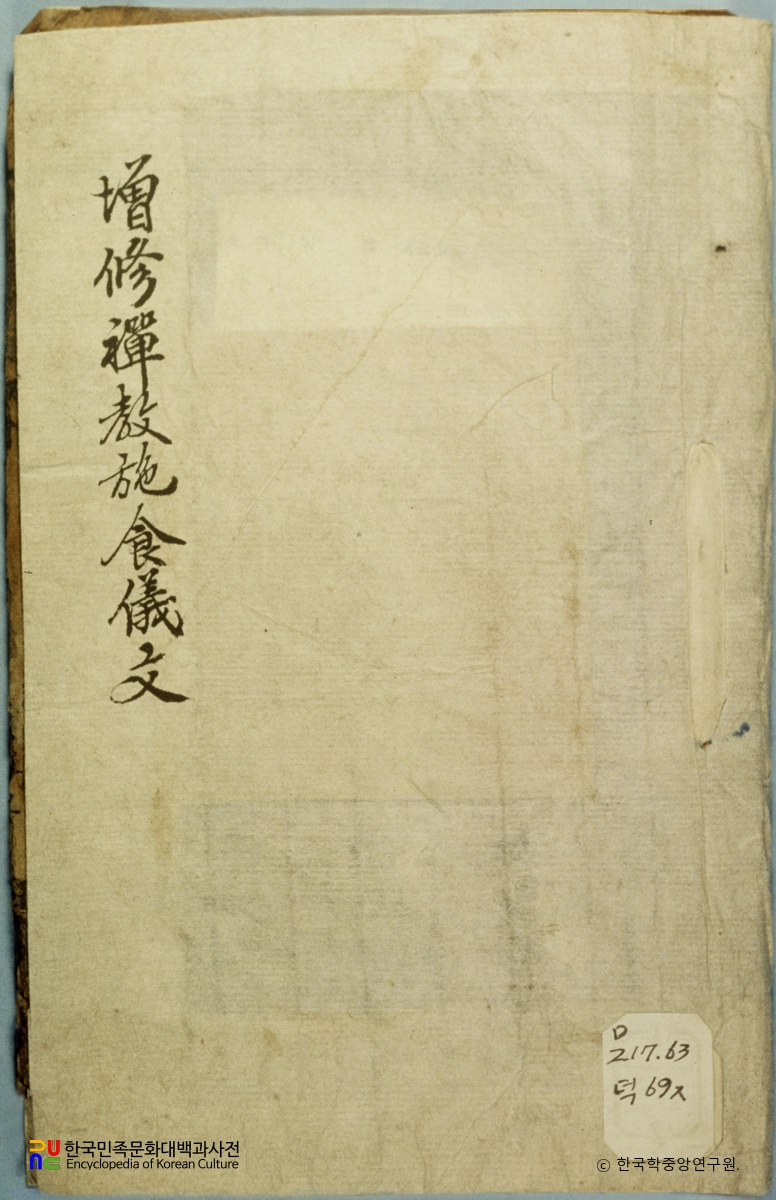 增修禪教施食儀文
D
217.63
덕69ㅈ
한국민족문화대백과사전
Encyclopedia of Korean Culture
ⓒ 한국학중앙연구원.